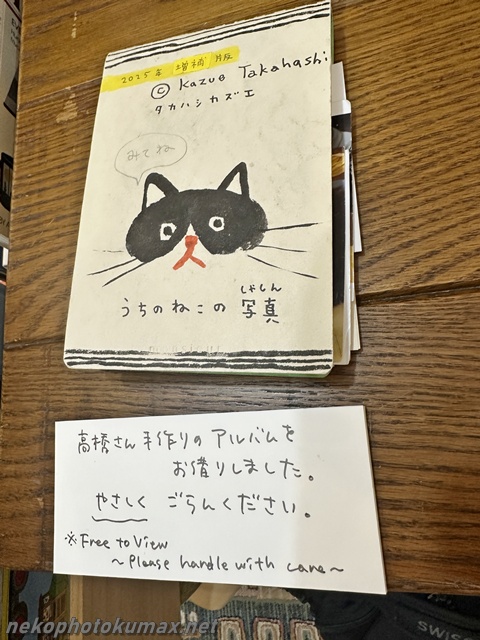 2025年 増補版
© Kazue Takahashi
タカハシカズエ
みてね
うちのねこの 写真
しゃしん
高橋さん手作りの アルバムを
お借りしました。
やさしく ごらんください。
※Free to View
~Please handle with care~
nekophotokumax.net
SWISS